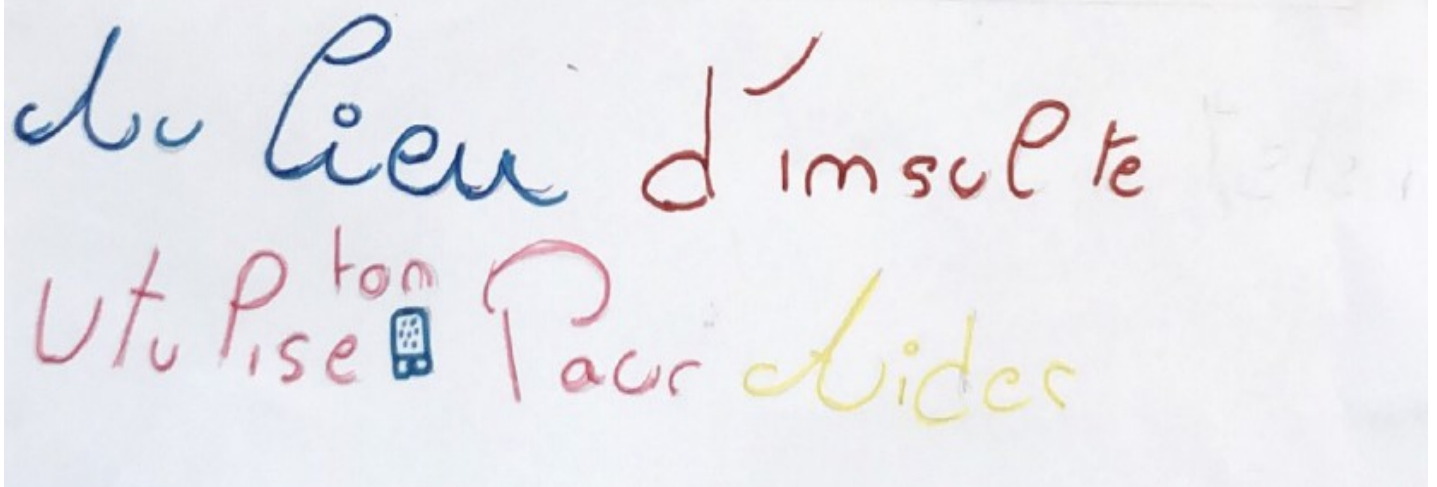 Au lieu d'insulte
Utulise ton Pour Aider